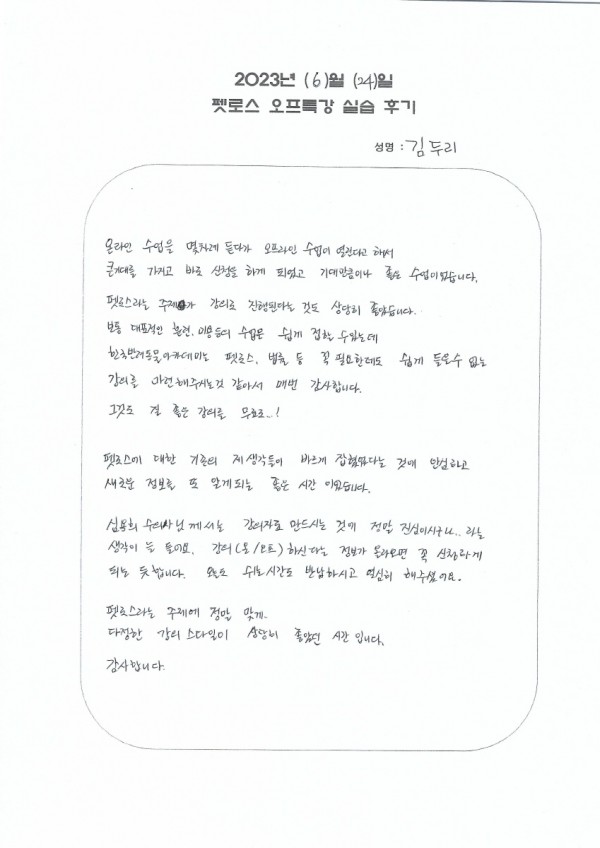 2023년 (6)월 (24)일
펫로스 오프특강 실습 후기
성명 : 김두리
온라인 수업을 몇차례 듣다가 오프라인 수업이 열린다고 해서
큰기대를 가지고 바로 신청을 하게 되었고 기대만큼이나 좋은 수업이었습니다.
펫로스라는 주제가 강의로 진행된다는 것도 상당히 좋았습니다.
보통 대표적인 훈련, 미용등의 수업은 쉽게 접할 수있는데
한국반려동물아카데미는 펫로스, 법률 등 꼭 필요한데도 쉽게 들을수 없는
강의를 마련해주시는것 같아서 매번 감사합니다.
그것도 질 좋은 강의를 무료로..!
펫로스에 대한 기존의 제 생각들이 바르게 잡혔었다는 것에 안심하고
새로운 정보를 또 알게되는 좋은 시간 이었습니다.
심용희 수의사님께서는 강의자료 만드시는 것에 정말 진심이시구나.. 라는
생각이 늘 들어요. 강의(온/오프) 하신다는 정보가 올라오면 꼭 신청하게
되는 듯합니다. 오늘도 쉬는시간도 반납하시고 열심히 해주셨어요.
펫로스라는 주제에 정말 맞게
다정한 강의 스타일이 상당히 좋았던 시간 입니다.
감사합니다.